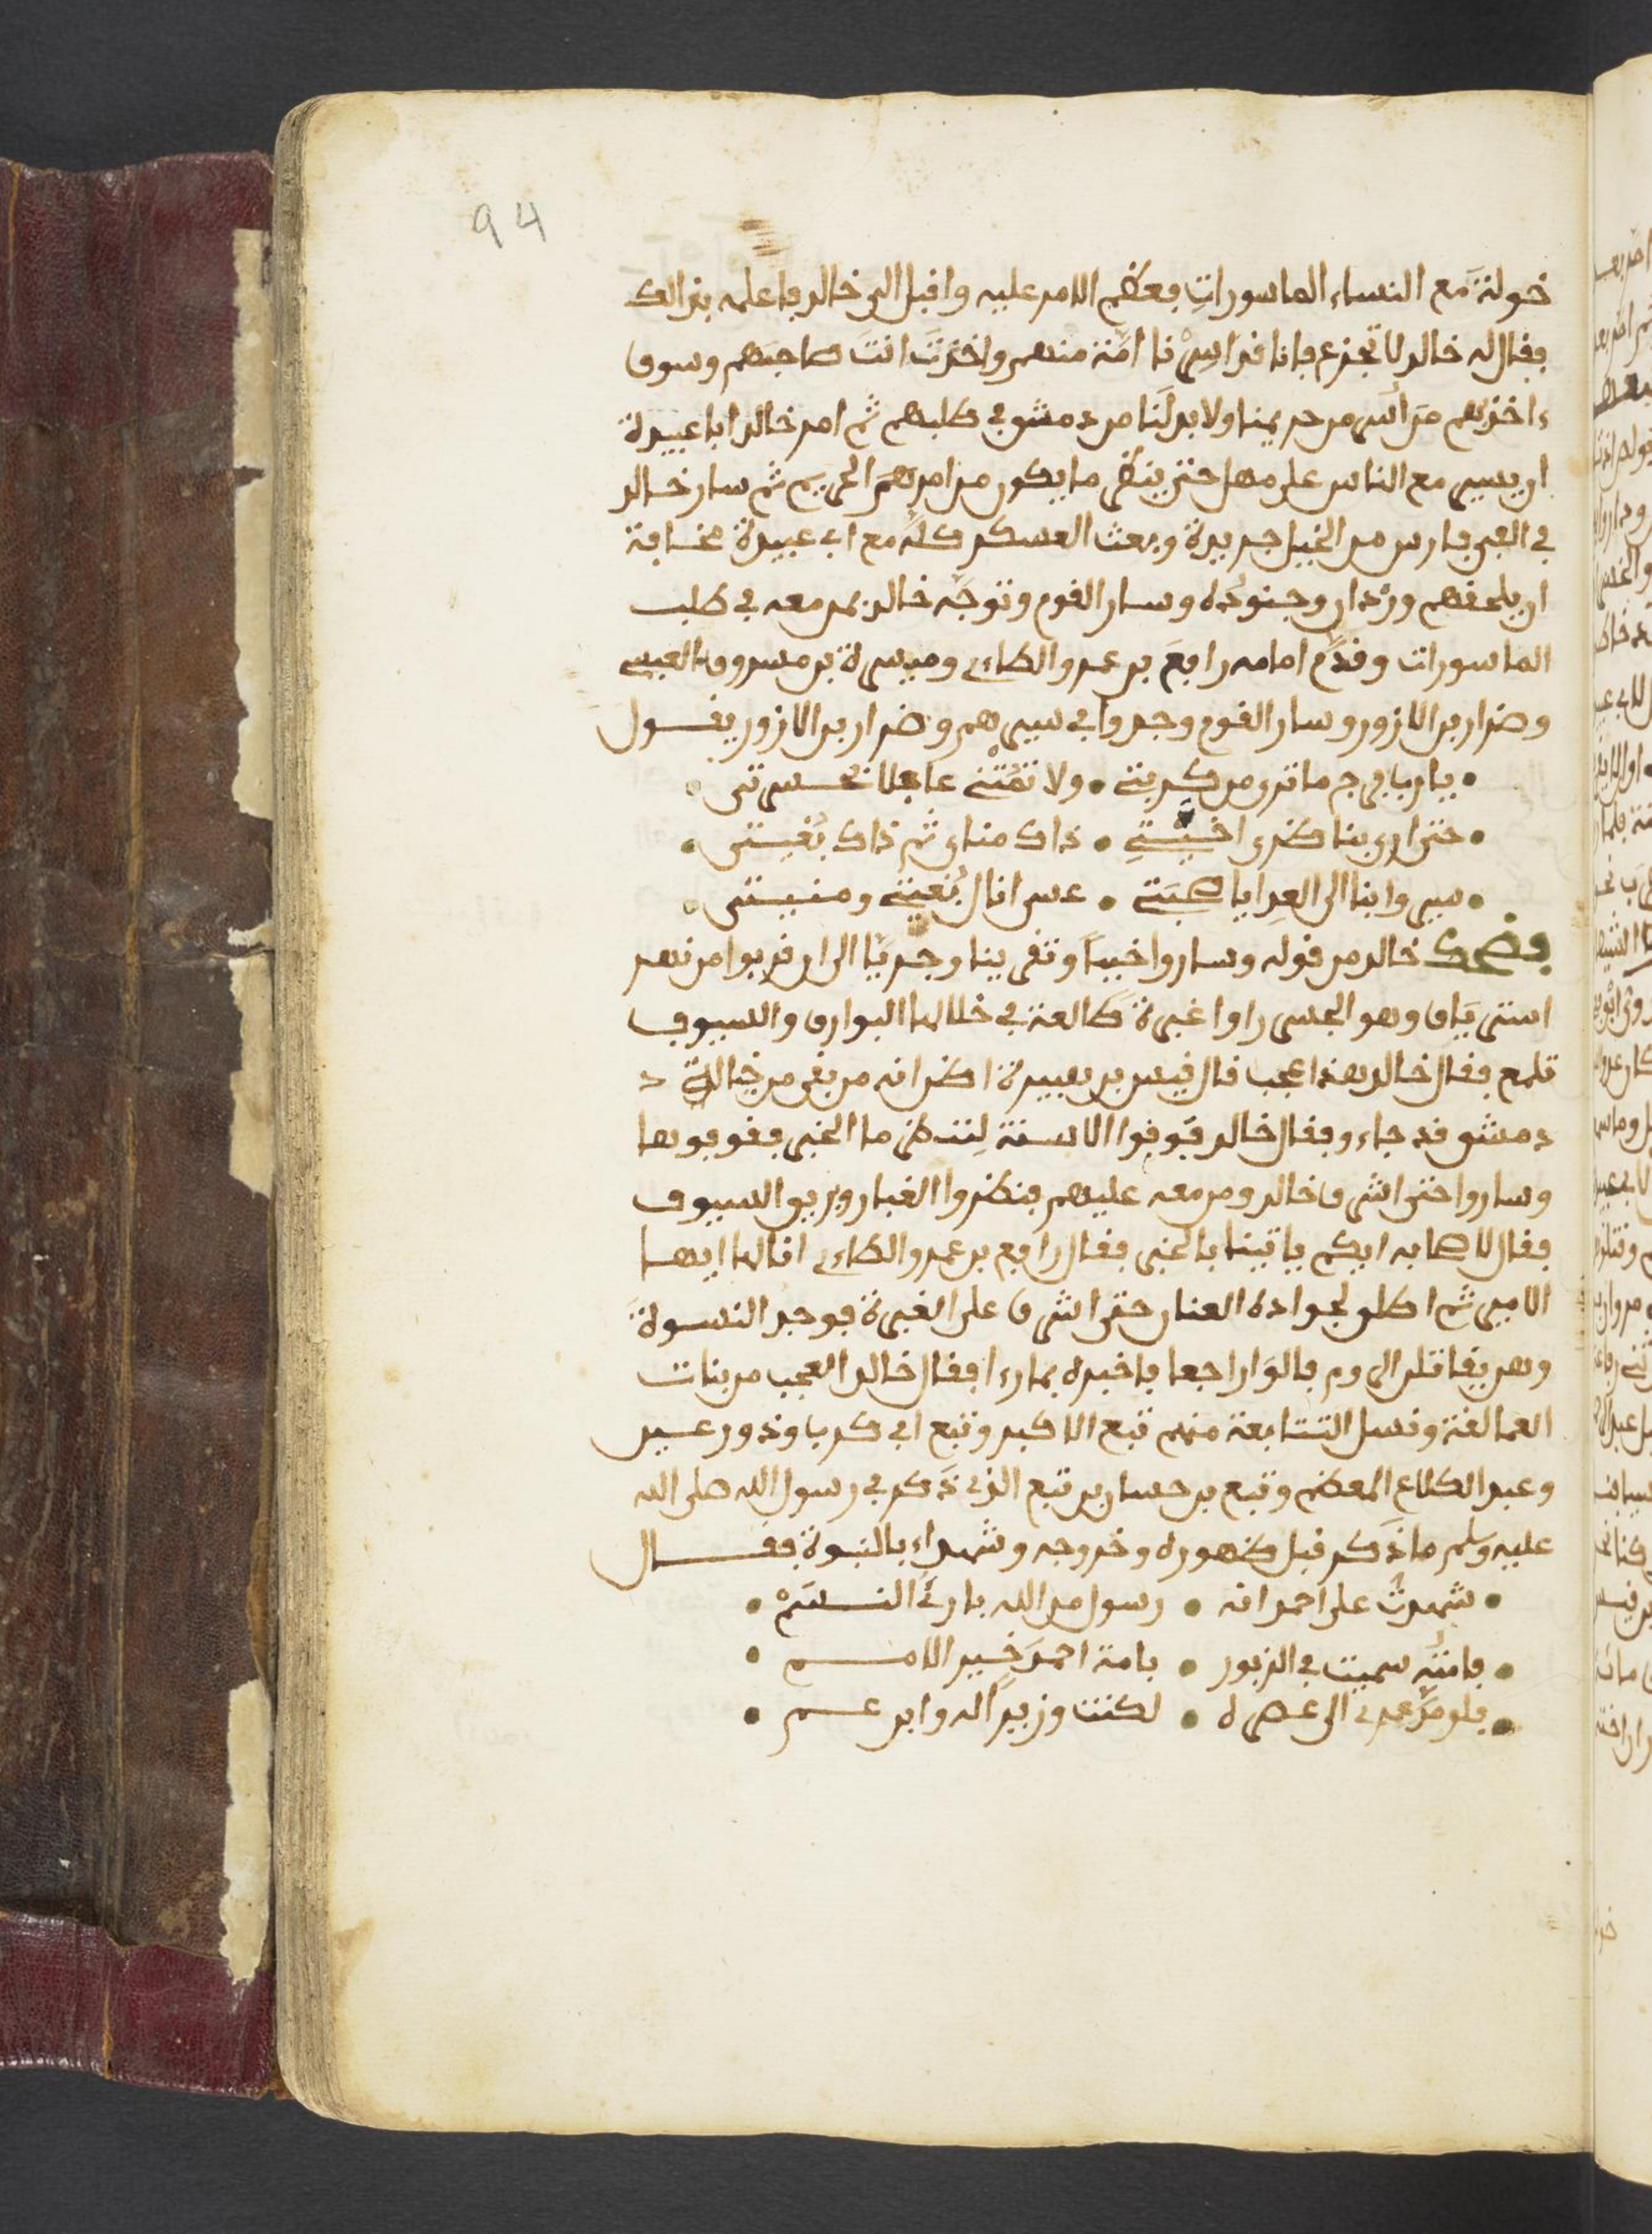 خولة مع النساء الماسوراتِ فعظم الامر عليه واقبل الى خالد فاعلمه بذالك
فقال له خالد لا تجزع فانا قد اسرنا امّة منهم واخذتَ انتَ صاحبَهم وسوف
ءاخذهم من أسر من حريمنا ولا بد لنا من دمشق في طلبهم ثم امر خالد ابا عبيدة
ان يسير مع الناس على مهل حتى ينظر ما يكون من امر هم الحريم ثم سار خالد
في الفي فارس من الخيل جريدة وبعث العسكر كلّه مع ابي عبيدة مخافة
ان يلحقهم وردان وجنوده وسار القوم وتوجّه خالد بمن معه في طلب
الماسورات وقدّم امامه رافع بن عمرو الطاءي وميسرة بن مسروق العبسي
وضرار بن الازور وسار القوم وجدوا في سيرهم وضرار بن الازور يقول
• يا رب فرج ما ترى من كربتي • ولا تمتني عاجلا بحسرتي •
• حتى ارى بناظرى اخيتي • ذاك مناى ثم ذاك بغيتي •
• سيروا بنا الى العدا يا صحبتي • عسى انال بغيتي ومنيتي •
فضحك خالد من قوله وساروا خبباً وتقريبا وجريا الى ان قربوا من نهر
استرياق وهو الجسر راوا غبرة طالعة في خلالها البوارق والسيوف
تلمع فقال خالد هذا عجب قال قيس بن هبيرة اظن انه من بقى من خيالة د
دمشق قد جاءو فقال خالد قوّفوا الاسنة لننظر ما الخبر فقوفوها
وساروا حتى اشرف خالد ومن معه عليهم فنظروا الغبار وبريق السيوف
فقال لاصحابه ايكم ياتينا بالخبر فقال رافع بن عمرو الطاءي انا لها ايها
الامير ثم اطلق لجواده العنان حتى اشرف على الغبرة فوجد النسوة
وهن يقاتلن الروم فالوا راجعا فاخبره بما رءا فقال خالد العجب من بنات
العمالقة ونسل التتابعة منهم تبع الاكبر وتبع ابي كرب وذو رعين
وعبد الكلاع المعظم وتبع بن حسان بن تبع الذي ذكر في رسول الله صلى الله
عليه وسلم ما ذكر قبل ظهوره وخروجه وشهداء بالنبوة فقال
• شهدت على احمد انه • رسول من الله بارئ النسم •
• فامّته سميت في الزبور • بامة احمد خير الامم •
• فلو مدّ عمرى الى عصره • لكنت وزيرا له وابن عم •
94